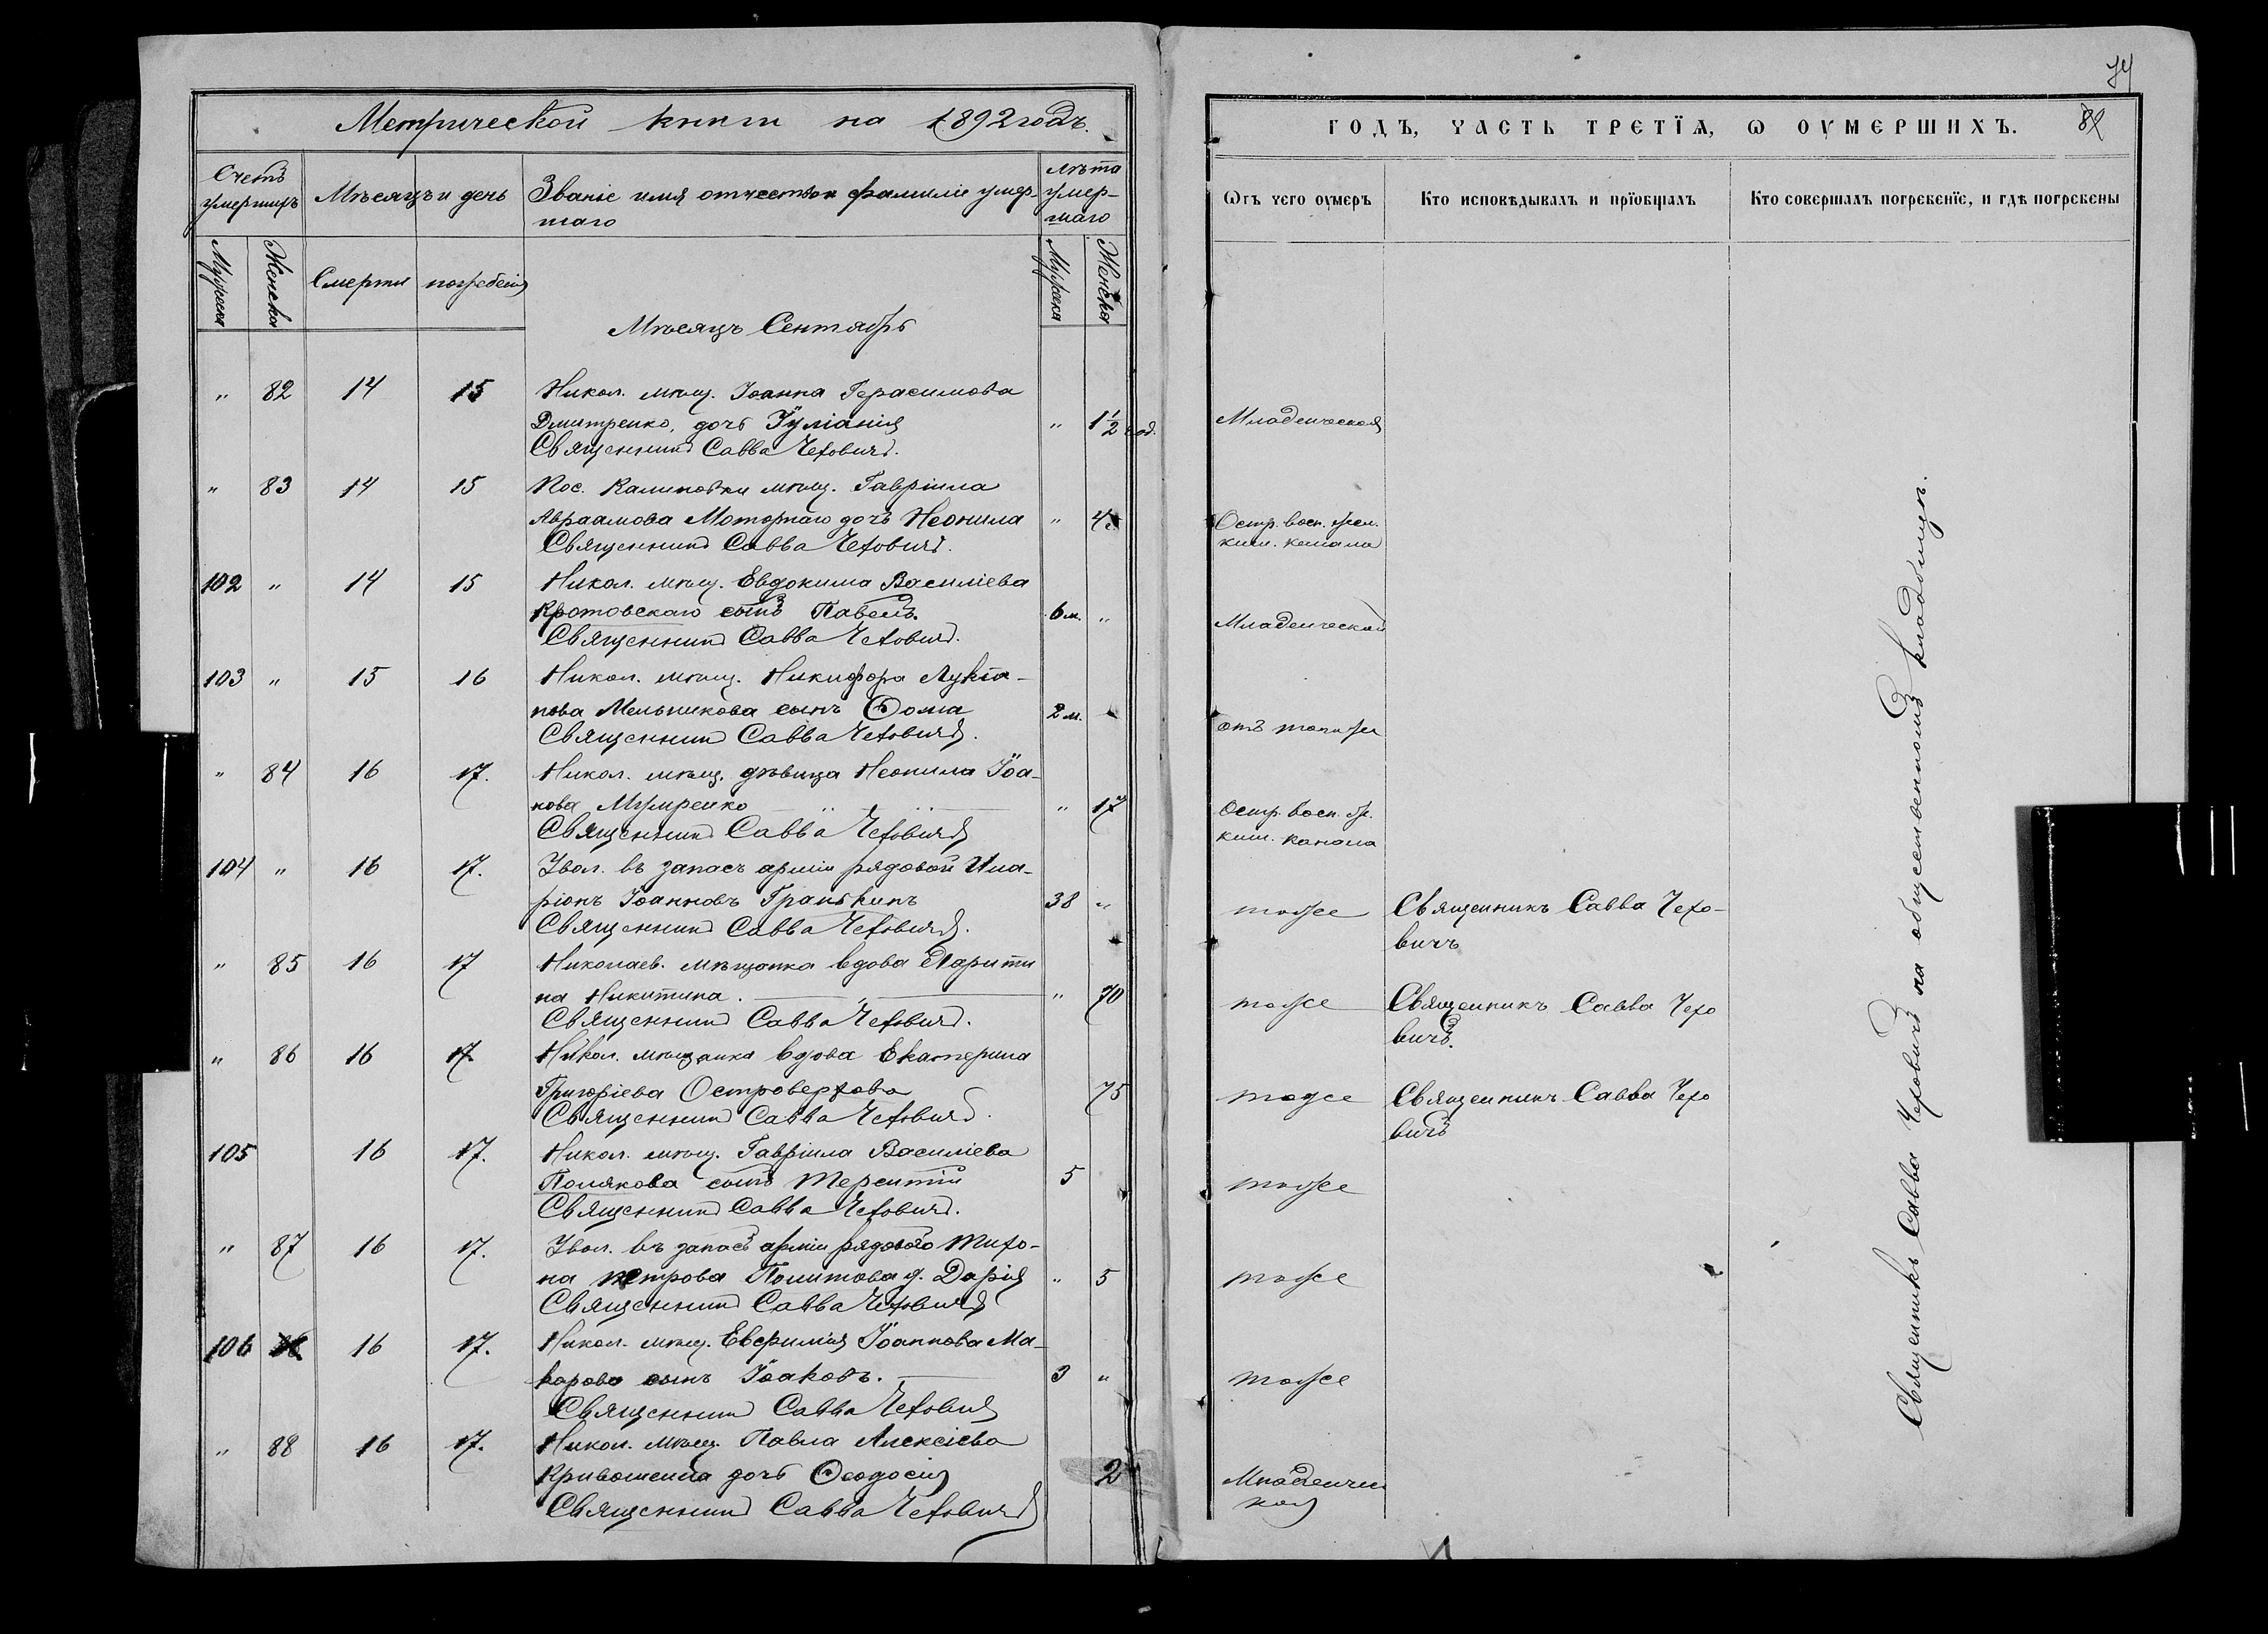 Метрической книги на 1892 годъ.
Счетъ умершихъ
Мѣсяцъ и день
Званіе имя отчество и фамилія умер-
шаго
Лѣта умер-
шаго
Мужска
Женска
Смерти
погребенія
Мужска
Женска
Мѣсяцъ Сентябрь
" 82 14 15 Никол. мѣщ. Іоанна Герасимова
Дмитренко, дочь Іуліанія " 1 1/2 год.
Священникъ Савва Чеховичъ.
" 83 14 15 Пос. Калиновки мѣщ. Гавріила
Авраамова Моторнаго дочь Неонила " 4
Священникъ Савва Чеховичъ.
102 " 14 15 Никол. мѣщ. Евдокима Василіева
Кротовскаго сынъ Павелъ. 6 м. "
Священникъ Савва Чеховичъ.
103 " 15 16 Никол. мѣщ. Никифора Лукіа-
нова Мельникова сынъ Ѳома 2 м.
Священникъ Савва Чеховичъ.
" 84 16 17. Никол. мѣщ. дѣвица Неонила Іоа-
нова Мумренко " 17
Священникъ Савва Чеховичъ
104 " 16 17. Увол. въ запасъ арміи рядовой Ила-
ріонъ Іоанновъ 38 "
Священникъ Савва Чеховичъ.
" 85 16 17 Николаев. мѣщанка вдова Харити
на Никитина. " 70
Священникъ Савва Чеховичъ.
" 86 16 17. Никол. мѣщанка вдова Екатерина
Григоріева Островерхова 75
Священникъ Савва Чеховичъ.
105 16 17. Никол. мѣщ. Гавріила Василіева
Полякова сынъ Терентій 5
Священникъ Савва Чеховичъ.
" 87 16 17. Увол. въ запасъ арміи рядового Тихо-
на Петрова Политова д. Дарія " 5
Священникъ Савва Чеховичъ
106 16 17. Никол. мѣщ. Евфимія Іоаннова Ма-
карова сынъ Іаковъ. 3 "
Священникъ Савва Чеховичъ
" 88 16 17. Никол. мѣщ. Павла Алексіева
Кривошеина дочь Ѳеодосія 2
Священникъ Савва Чеховичъ
74
ГОДЪ, ЧАСТЬ ТРЕТЇѦ, Ѡ ОУМЕРШИХЪ.
Ѿтъ чего оумеръ
Кто исповѣдывалъ и прїобщалъ
Кто совершалъ погребенїе, и гдѣ погребены
Младенческая
Остр. восп. жел.
киш. канала
Младенческой
отъ тоиже
Остр. восп. ж.
киш. канала
тоже Священникъ Савва Чехо-
вичъ
тоже Священникъ Савва Чехо
вичъ.
тоже Священникъ Савва Чехо
вичъ
тоже
тоже
тоже
Младенчес
кая
Священникъ Савва Чеховичъ на общественномъ кладбищѣ.